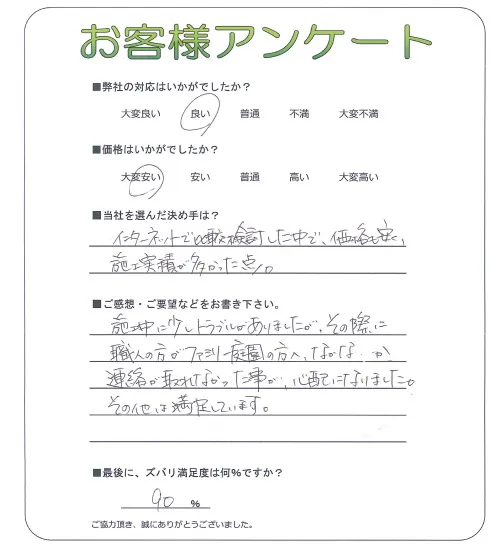 お客様アンケート
■弊社の対応はいかがでしたか？
大変良い 良い 普通 不満 大変不満
■価格はいかがでしたか？
大変安い 安い 普通 高い 大変高い
■当社を選んだ決め手は？
インターネットで比較検討した中で、価格も安く、
施工実績が多かった点。
■ご感想・ご要望などをお書き下さい。
施工中に少しトラブルがありましたが、その際に
職人の方がファミリー庭園の方へ、なかなか
連絡が取れなかった事が、心配になりました。
その他は満足しています。
■最後に、ズバリ満足度は何％ですか？
90 %
ご協力頂き、誠にありがとうございました。